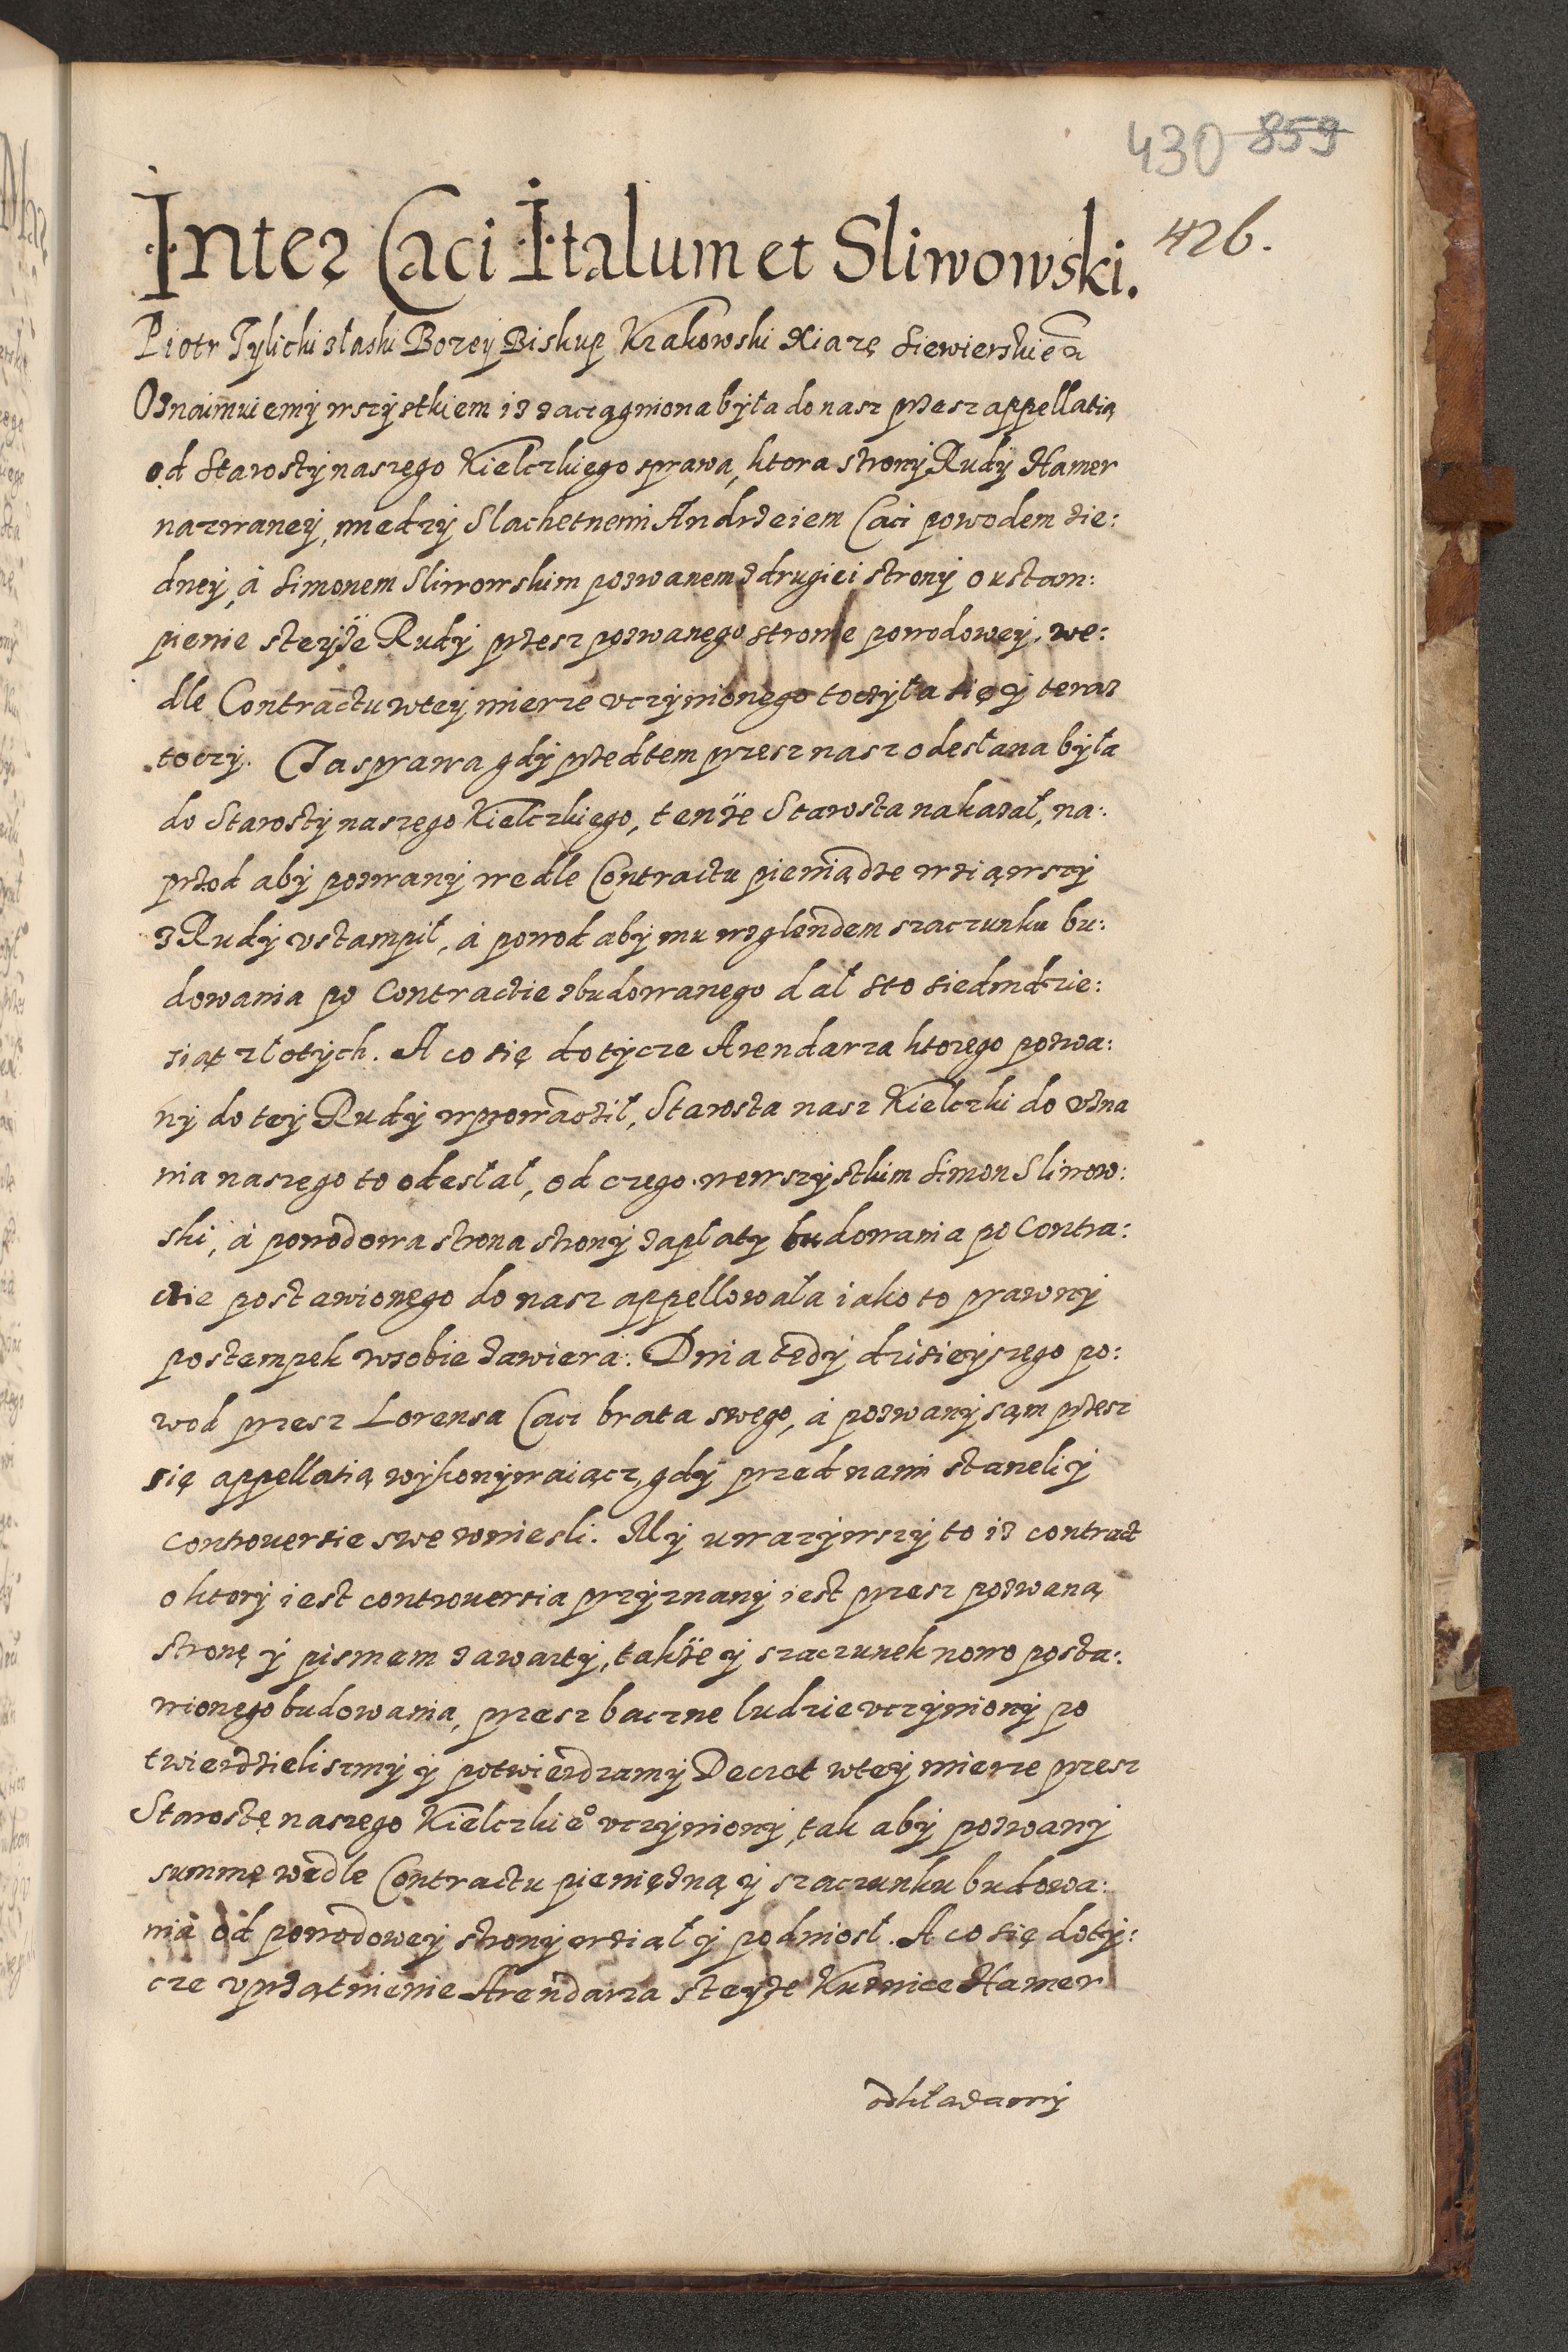 430 859
426.
Inter Caci Italum et Sliwowski.
Piotr Tylicki z łaski Bozey Biskup Krakowski Xiazę Siewierskie etc
Oznaimuiemy wszystkiem iz zaciągniona była do nasz przesz appellatią
od Starosty naszego Kielczkiego sprawa, ktora strony Rudy Hamer
nazwaney, miedzy Slachetnemi Andrzeiem Caci powodem zie:
dney, á Simonem Sliwowskim pozwanem z drugiei strony o ustam:
pienie z teyże Rudy przesz pozwanego stronie powodowey, we:
dle Contractu w tey mierze vczynionego toczyła się y teraz
toczy. Ta sprawa gdy przedtem przesz nasz odesłana była
do Starosty naszego Kielczkiego, tenże Starosta nakazał, na:
przod aby pozwany wedle Contractu pieniądze wziąwszy
z Rudy vstampił, á powod aby mu wzglendem szaczunku bu:
dowania po Contractie zbudowanego dał sto siedmdzie:
siąt złotych. A co się dotycze Arendarza ktorego pozwa:
ny do tey Rudy wprowadził, Starosta nasz Kielczki do vzna
nia naszego to odesłał, od czego wewszystkim Simon Sliwow:
ski, á powodowa strona strony zapłaty budowania po Contra:
ctie postawionego do nasz appellowała iako to prawny
postempek w sobie zawiera. Dnia tedy dzisieyszego po:
wod przesz Lorensa Caci brata swego, á pozwany sąm przesz
się appellatią wykonywaiącz, gdy przed nami staneli y
controuersie swe wniesli. My uwazywszy to iz contract
o ktory iest controuersia przyznany iest przesz pozwaną
stronę y pismem zawarty, takze y szaczunek nowo posta:
wionego budowania, przesz baczne ludzie vczyniony po
twierdzieliszmy y potwierdzamy Decret w tey mierze przesz
Starostę naszego Kielczkie° vczyniony, tak aby pozwany
summę wedle Contractu pieniężną y szaczunku budowa:
nia od powodowey strony wział y podniosł. A co się doty:
cze vprzątnienie Arendarza z teyze Kuznice Hamer
odkładamy